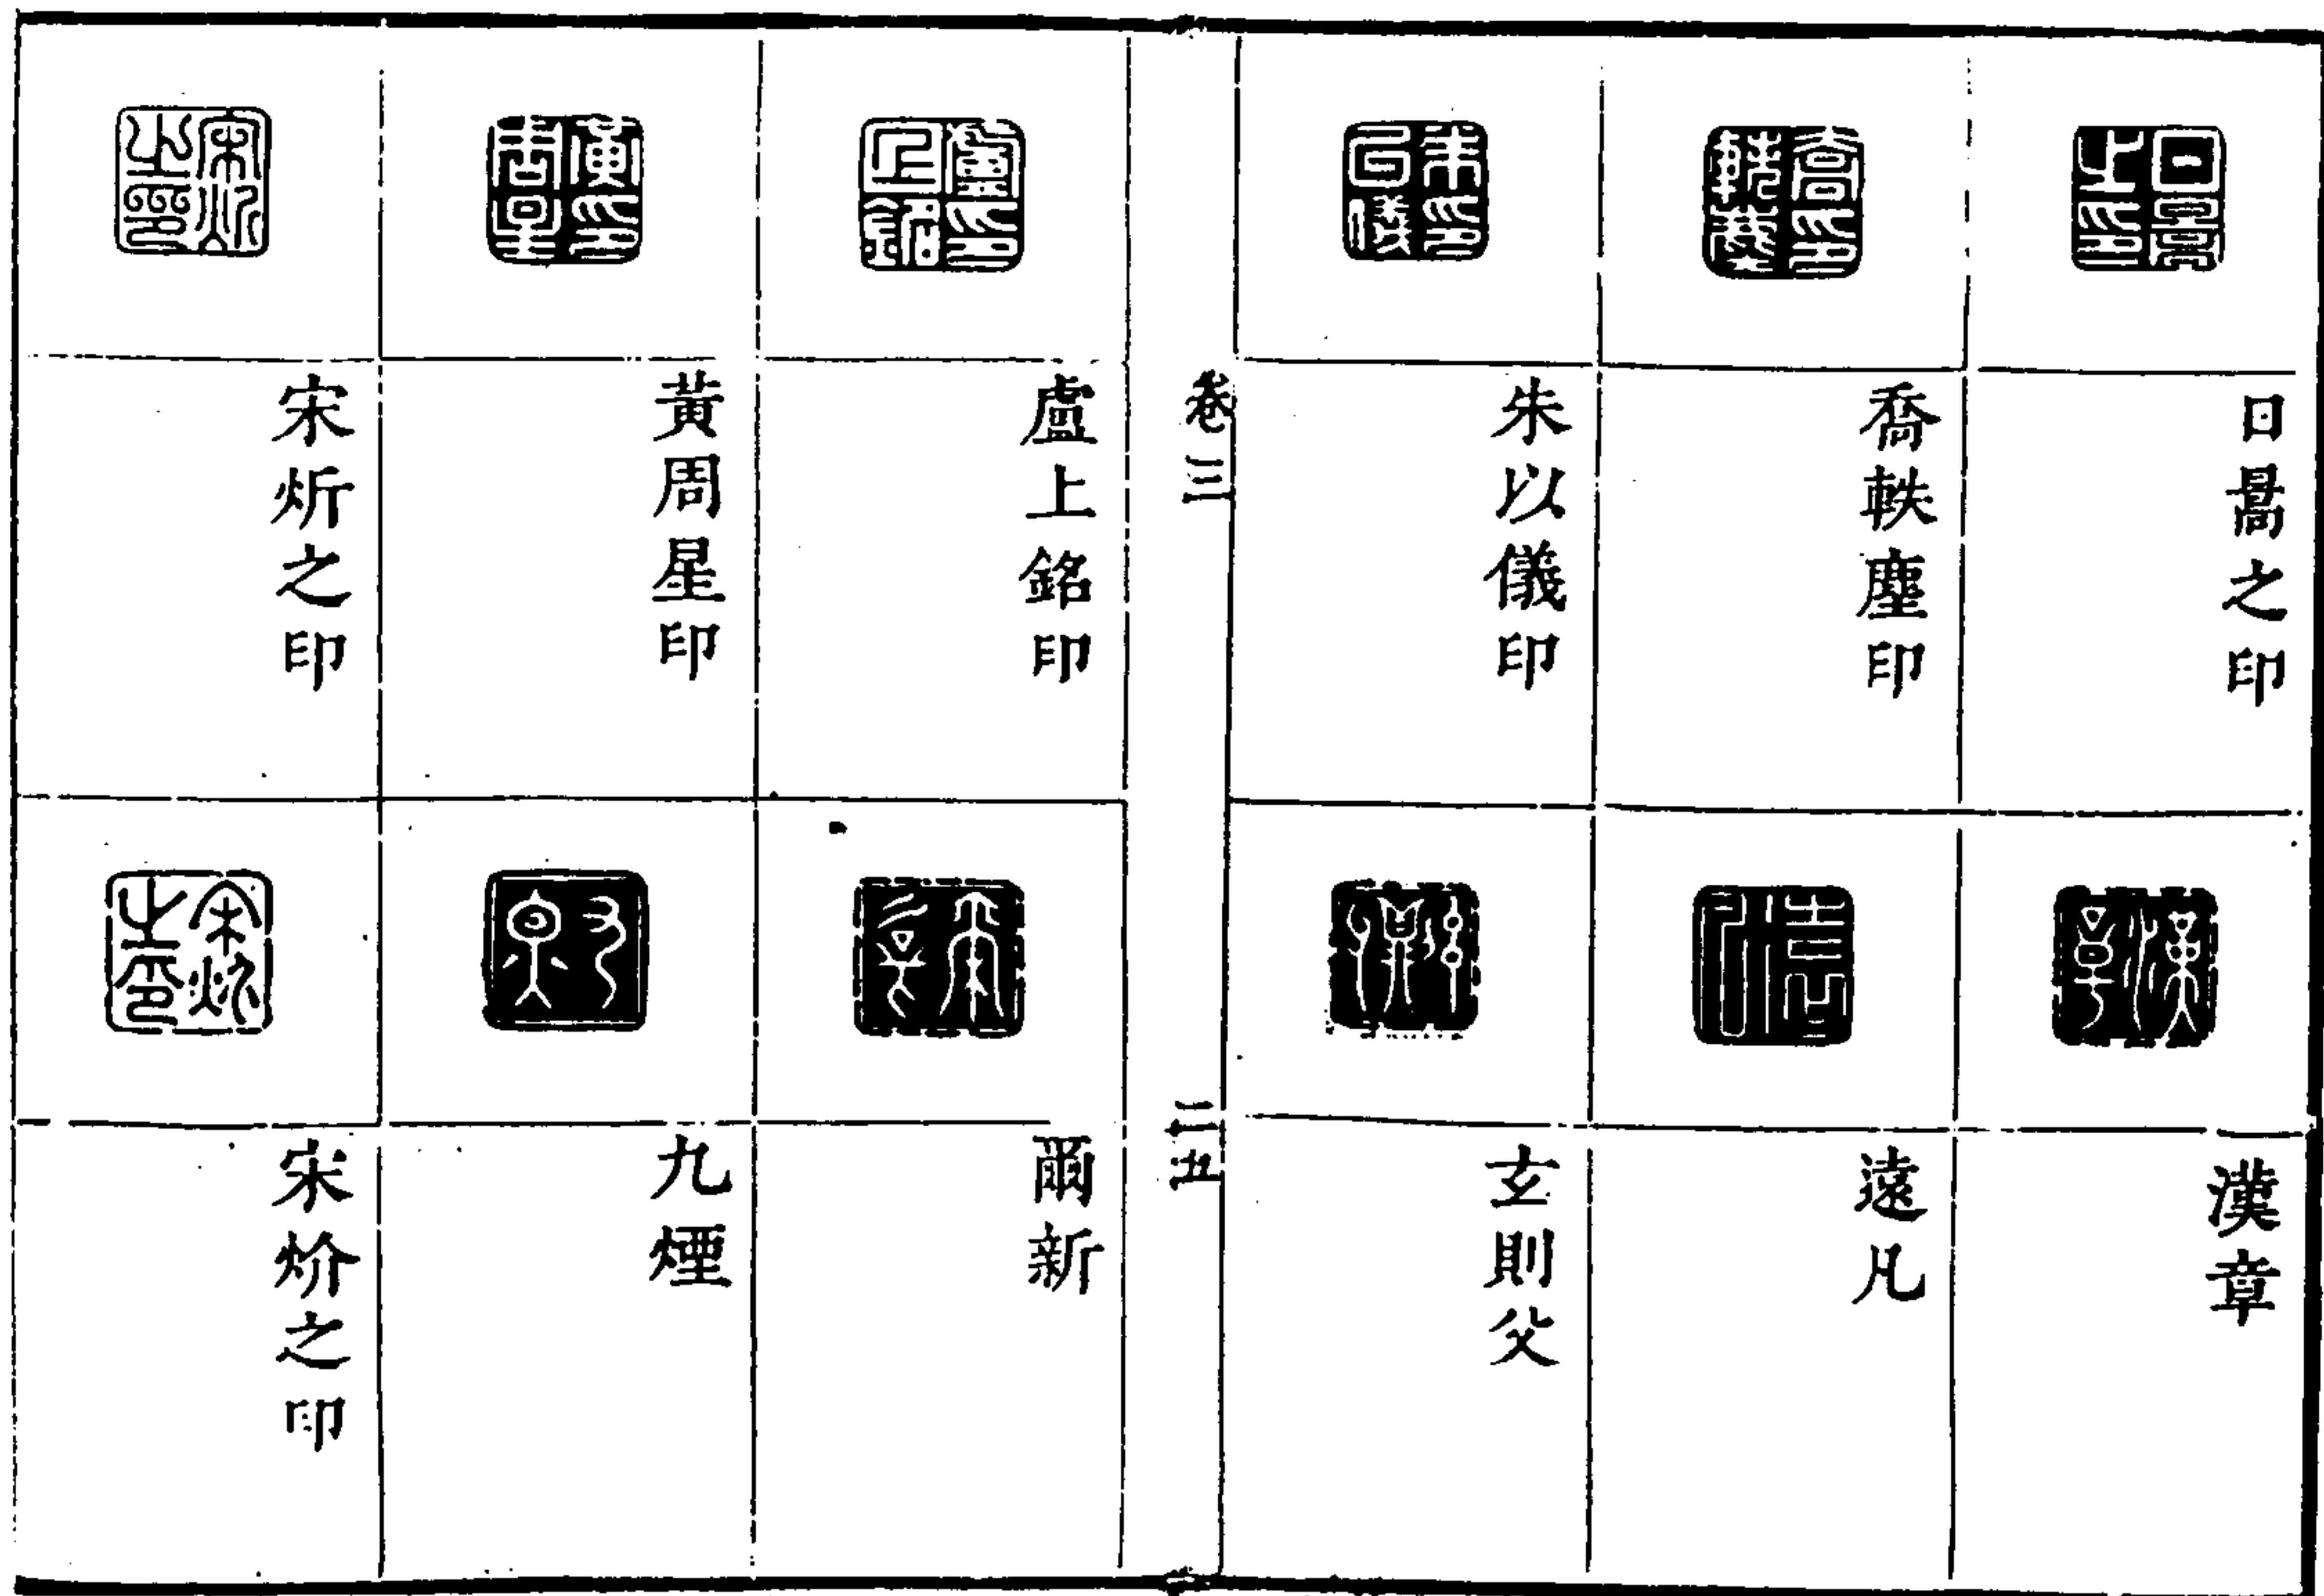 日暠之印
漢章
喬軼塵印
遠凡
朱以儀印
玄則父
卷三
二十五
盧上銘印
爾新
黃周星印
九煙
宋炘之印
宋炌之印